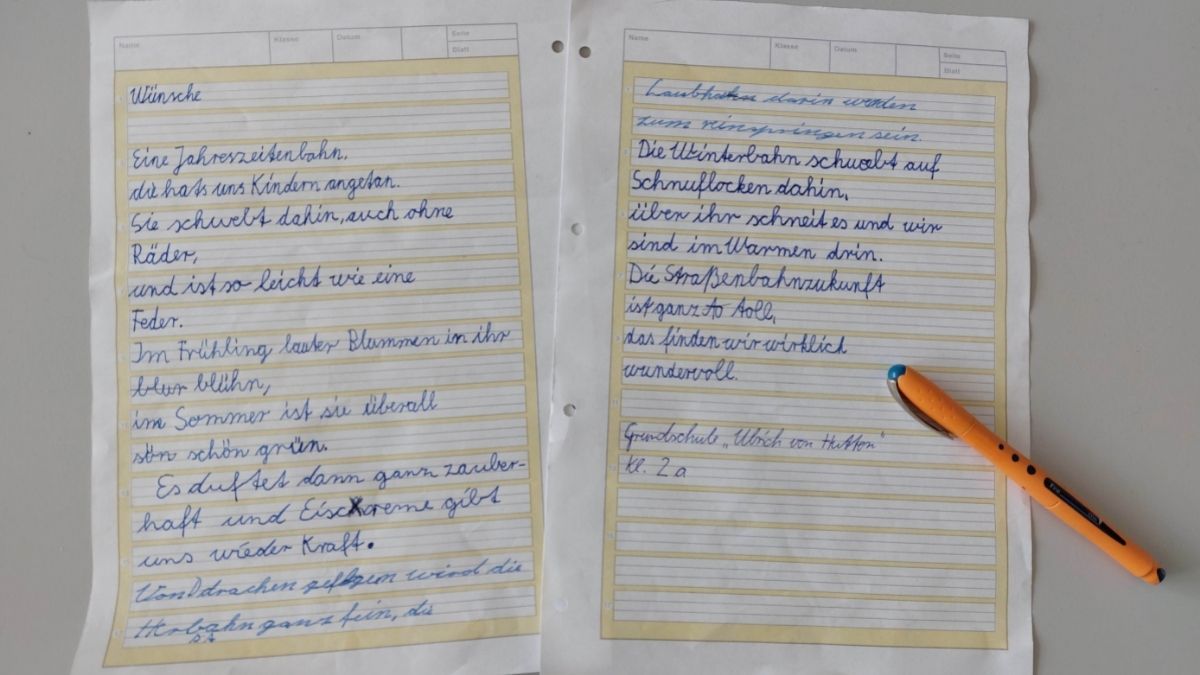 Name Klasse Datum Seite
Blatt
Wünsche
Eine Jahreszeitenbahn.
die hats uns Kindern angetan.
Sie schwebt dahin, auch ohne
Räder,
und ist so leicht wie eine
Feder.
Im Frühling lauter Blummen in ihr
blur blühn,
im Sommer ist sie überall
sön schön grün.
Es duftet dann ganz zauber-
haft und Eiscreme gibt
uns wieder Kraft.
Von drachen wird die
ganz fein, die
Name Klasse Datum Seite
Blatt
darin werden
zum reinspringen sein.
Die Winterbahn schwebt auf
Schnuflocken dahin,
über ihr schneit es und wir
sind im Warmen drin.
Die Straßenbahnzukunft
ist ganz to toll,
das finden wir wirklich
wundervoll.
Grundschule „Ulrich von Hutton"
Kl. 2a